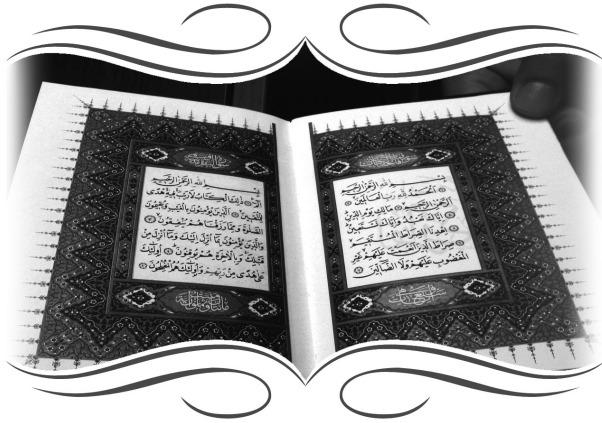 بِسْمِ اللهِ الرَّحْمٰنِ الرَّحِيمِ
اَلْحَمْدُ لِلّٰهِ رَبِّ الْعَالَمِينَ
اَلرَّحْمٰنِ الرَّحِيمِ مَالِكِ يَوْمِ الدِّينِ
اِيَّاكَ نَعْبُدُ وَاِيَّاكَ نَسْتَعِينُ
اِهْدِنَا الصِّرَاطَ الْمُسْتَقِيمَ
صِرَاطَ الَّذِينَ اَنْعَمْتَ عَلَيْهِمْ غَيْرِ
الْمَغْضُوبِ عَلَيْهِمْ وَلَا الضَّالِّينَ
بِسْمِ اللهِ الرَّحْمٰنِ الرَّحِيمِ
الٓمٓ ذٰلِكَ الْكِتَابُ لَا رَيْبَ فِيهِ هُدًى
لِلْمُتَّقِينَ اَلَّذِينَ يُؤْمِنُونَ بِالْغَيْبِ وَيُقِيمُونَ
الصَّلٰوةَ وَمِمَّا رَزَقْنَاهُمْ يُنْفِقُونَ
وَالَّذِينَ يُؤْمِنُونَ بِمَا اُنْزِلَ اِلَيْكَ وَمَا اُنْزِلَ مِنْ
قَبْلِكَ وَبِالْاٰخِرَةِ هُمْ يُوقِنُونَ اُولٰئِكَ
عَلٰى هُدًى مِنْ رَبِّهِمْ وَاُولٰئِكَ هُمُ الْمُفْلِحُونَ